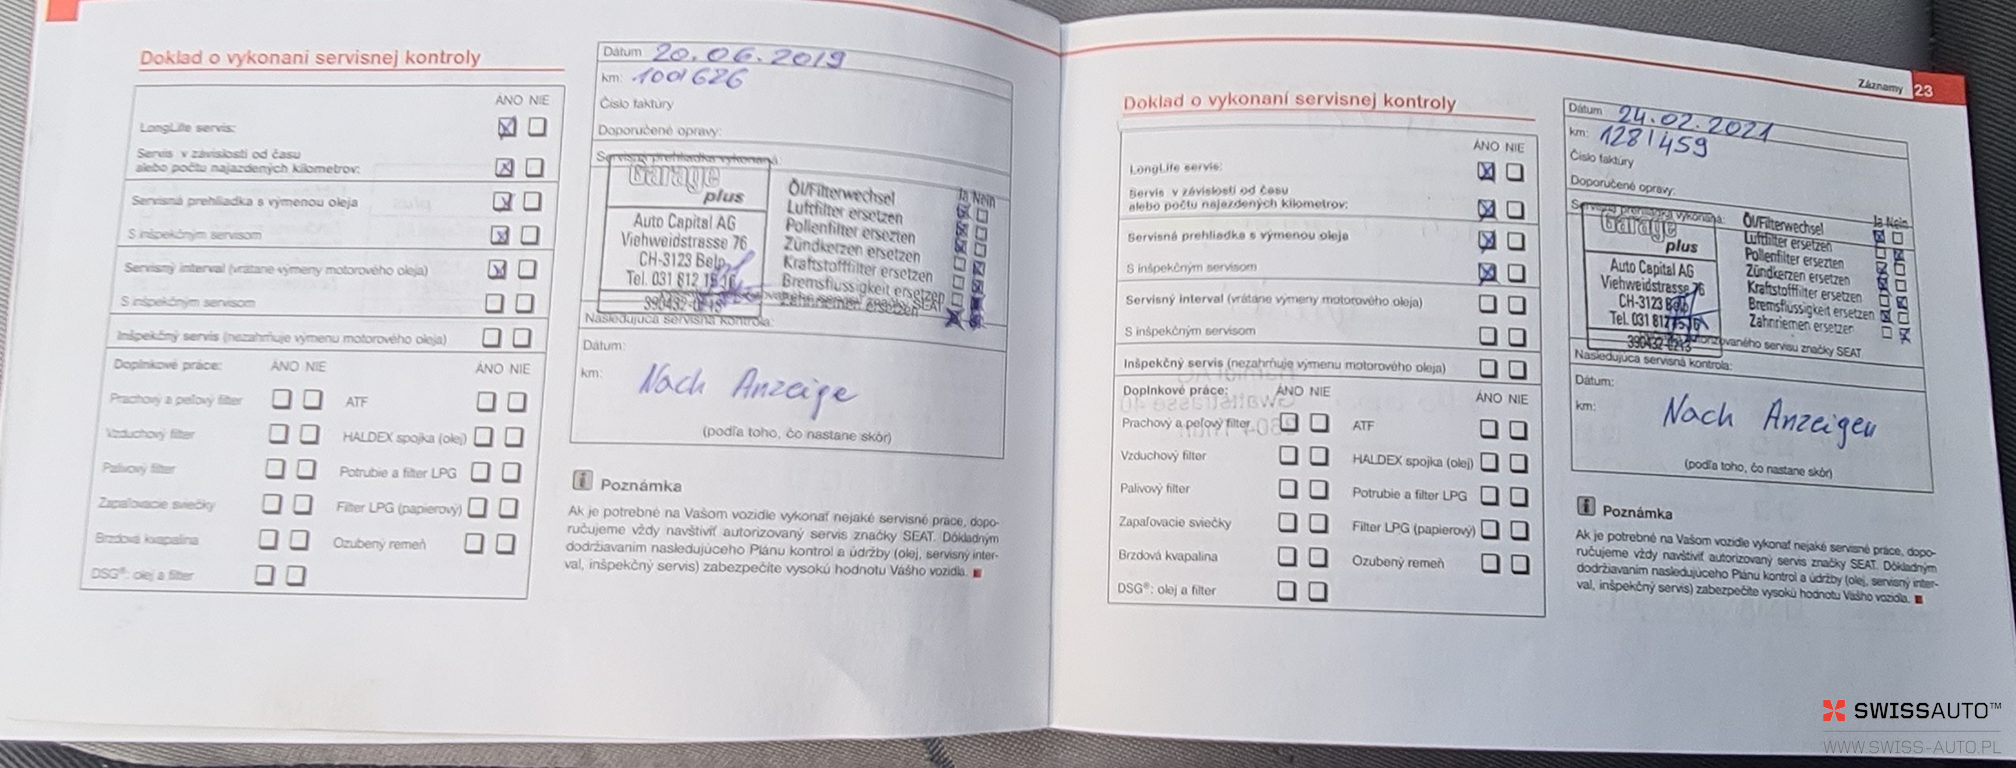 Doklad o vykonaní servisnej kontroly
ÁNO NIE
LongLife servis:
Servis v závislosti od času
alebo počtu najazdených kilometrov:
Servisná prehliadka s výmenou oleja
S inšpekčným servisom
Servisný interval (vrátane výmeny motorového oleja)
S inšpekčným servisom
Inšpekčný servis (nezahrňuje výmenu motorového oleja)
Doplnkové práce: ÁNO NIE ÁNO NIE
Prachový a peľový filter ATF
Vzduchový filter HALDEX spojka (olej)
Palivový filter Potrubie a filter LPG
Zapaľovacie sviečky Filter LPG (papierový)
Brzdová kvapalina Ozubený remeň
DSG®: olej a filter
Dátum 20.06.2019
km: 100'626
Číslo faktúry
Doporučené opravy:
Servisná prehliadka vykonaná:
Garage
plus
Auto Capital AG
Viehweidstrasse 76
CH-3123 Belp
Tel. 031 812 15 16
390432-0213
Ja Nein
Öl/Filterwechsel
Luftfilter ersetzen
Pollenfilter ersezten
Zündkerzen ersetzen
Kraftstofffilter ersetzen
Bremsflüssigkeit ersetzen
Zahnriemen ersetzen
SEAT
Nasledujúca servisná kontrola:
Dátum:
km: Nach Anzeige
(podľa toho, čo nastane skôr)
i Poznámka
Ak je potrebné na Vašom vozidle vykonať nejaké servisné práce, dopo-
ručujeme vždy navštíviť autorizovaný servis značky SEAT. Dôkladným
dodržiavaním nasledujúceho Plánu kontrol a údržby (olej, servisný inter-
val, inšpekčný servis) zabezpečíte vysokú hodnotu Vášho vozidla.
Záznamy 23
Doklad o vykonaní servisnej kontroly
ÁNO NIE
LongLife servis:
Servis v závislosti od času
alebo počtu najazdených kilometrov:
Servisná prehliadka s výmenou oleja
S inšpekčným servisom
Servisný interval (vrátane výmeny motorového oleja)
S inšpekčným servisom
Inšpekčný servis (nezahrňuje výmenu motorového oleja)
Doplnkové práce: ÁNO NIE ÁNO NIE
Prachový a peľový filter ATF
Vzduchový filter HALDEX spojka (olej)
Palivový filter Potrubie a filter LPG
Zapaľovacie sviečky Filter LPG (papierový)
Brzdová kvapalina Ozubený remeň
DSG®: olej a filter
Dátum 24.02.2021
km: 128'459
Číslo faktúry
Doporučené opravy:
Servisná prehliadka vykonaná:
Garage
plus
Auto Capital AG
Viehweidstrasse 76
CH-3123 Belp
Tel. 031 812 15 16
390432-0213
Ja Nein
Öl/Filterwechsel
Luftfilter ersetzen
Pollenfilter ersezten
Zündkerzen ersetzen
Kraftstofffilter ersetzen
Bremsflüssigkeit ersetzen
Zahnriemen ersetzen
autorizovaného servisu značky SEAT
Nasledujúca servisná kontrola:
Dátum:
km: Nach Anzeigen
(podľa toho, čo nastane skôr)
i Poznámka
Ak je potrebné na Vašom vozidle vykonať nejaké servisné práce, dopo-
ručujeme vždy navštíviť autorizovaný servis značky SEAT. Dôkladným
dodržiavaním nasledujúceho Plánu kontrol a údržby (olej, servisný inter-
val, inšpekčný servis) zabezpečíte vysokú hodnotu Vášho vozidla.
SWISSAUTO™
WWW.SWISS-AUTO.PL